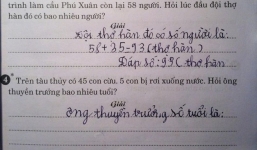 trình làm cầu Phú Xuân còn lại 58 người. Hỏi lúc đầu đội thợ
hàn đó có bao nhiêu người?
Giải
đội thợ hàn đó có số người là:
58 + 35 = 93 (thợ hàn)
Đáp số: 93 (thợ hàn
4 Trên tàu thủy có 45 con cừu. 5 con bị rơi xuống nước. Hỏi ông
thuyền trưởng bao nhiêu tuổi?
Giải
ông thuyền trưởng số tuổi là: